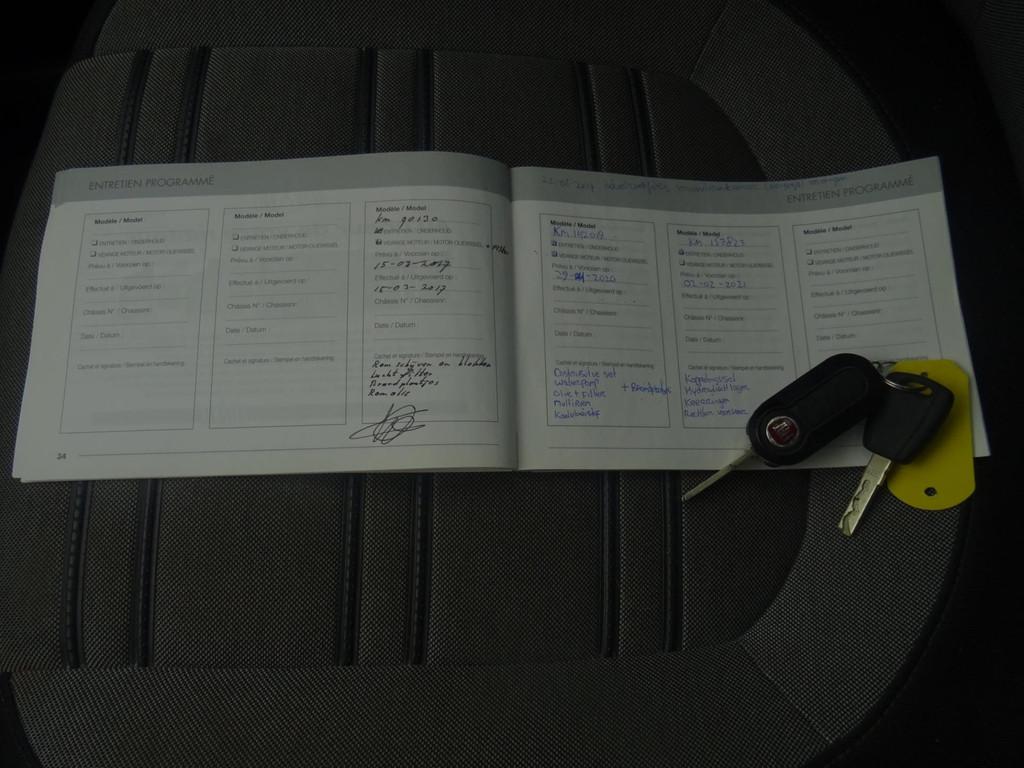 ENTRETIEN PROGRAMMÉ
Modèle / Model
ENTRETIEN / ONDERHOUD
VIDANGE MOTEUR / MOTOR-OLIEWISSEL
Prévu à / Voorzien op :
Effectué à / Uitgevoerd op :
Châssis N° / Chassisnr:
Date / Datum :
Cachet et signature / Stempel en handtekening:
Modèle / Model
ENTRETIEN / ONDERHOUD
VIDANGE MOTEUR / MOTOR-OLIEWISSEL
Prévu à / Voorzien op :
Effectué à / Uitgevoerd op :
Châssis N° / Chassisnr:
Date / Datum :
Cachet et signature / Stempel en handtekening:
Modèle / Model
km 90130
ENTRETIEN / ONDERHOUD
VIDANGE MOTEUR / MOTOR-OLIEWISSEL
Prévu à / Voorzien op :
15-03-2017
Effectué à / Uitgevoerd op :
15-03-2017
Châssis N° / Chassisnr:
Date / Datum :
Cachet et signature / Stempel en handtekening:
Rem schijven en blokken
Lucht filter
Remolie
34
ENTRETIEN PROGRAMMÉ
Modèle / Model
ENTRETIEN / ONDERHOUD
VIDANGE MOTEUR / MOTOR-OLIEWISSEL
Prévu à / Voorzien op :
2020
Effectué à / Uitgevoerd op :
Châssis N° / Chassisnr:
Date / Datum :
Cachet et signature / Stempel en handtekening:
Distributie set
Waterpomp
Olie + Filter
Multiriem
Modèle / Model
KM 137823
ENTRETIEN / ONDERHOUD
VIDANGE MOTEUR / MOTOR-OLIEWISSEL
Prévu à / Voorzien op :
02-02-2021
Effectué à / Uitgevoerd op :
Châssis N° / Chassisnr:
Date / Datum :
Cachet et signature / Stempel en handtekening:
Koppelingsset
Keerringen
Modèle / Model
ENTRETIEN / ONDERHOUD
VIDANGE MOTEUR / MOTOR-OLIEWISSEL
Prévu à / Voorzien op :
Effectué à / Uitgevoerd op :
Châssis N° / Chassisnr:
Date / Datum :
FIAT